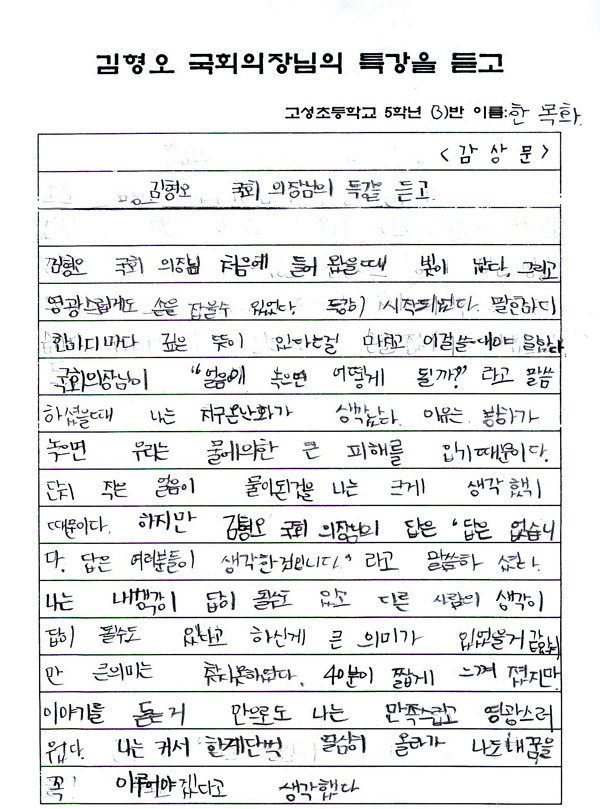 김형오 국회의장님의 특강을 듣고
고성초등학교 5학년 (3)반 이름:한 목화
<감상문>
김형오 국회 의장님의 특강을 듣고
김형오 국회 의장님 처음에 들어 왔을때 빛이 났단, 그리고
영광스럽게도 손을 잡을수 있었다. 특강이 시작되었다. 말한마디
한마디마다 깊은 뜻이 있다는걸 이걸쓸때야
국회의장님이 "얼음이 녹으면 어떻게 될까?" 라고 말씀
하셨을때 나는 지구온난화가 생각났다. 이유는 빙하가
녹으면 우리는 물에의한 큰 피해를 입기때문이다.
단지 작은 얼음이 물이된것을 나는 크게 생각 했기
때문이다. 하지만 김형오 국회 의장님의 답은 "답은 없습니
다. 답은 여러분들이 생각한것입니다." 라고 말씀하 셨다.
나는 내생각이 답이 될수도 있고 다른 사람의 생각이
답이 될수도 있다고 하신게 큰 의미가 있었을거 같았지
만 큰의미는 찾지못하였다. 40분이 짧게 느껴 졌지만
이야기를 듣는거 만으로도 나는 만족스럽고 영광스러
웠다. 나는 커서 한계단씩 열심히 올라가 나도 내 꿈을
꼭 이루어야겠다고 생각했다